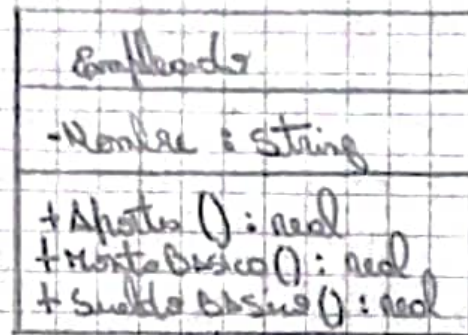 Empleado
-Nombre : String
+ Aportes () : real
+ MontoBasico() : real
+ SueldoBasico() : real